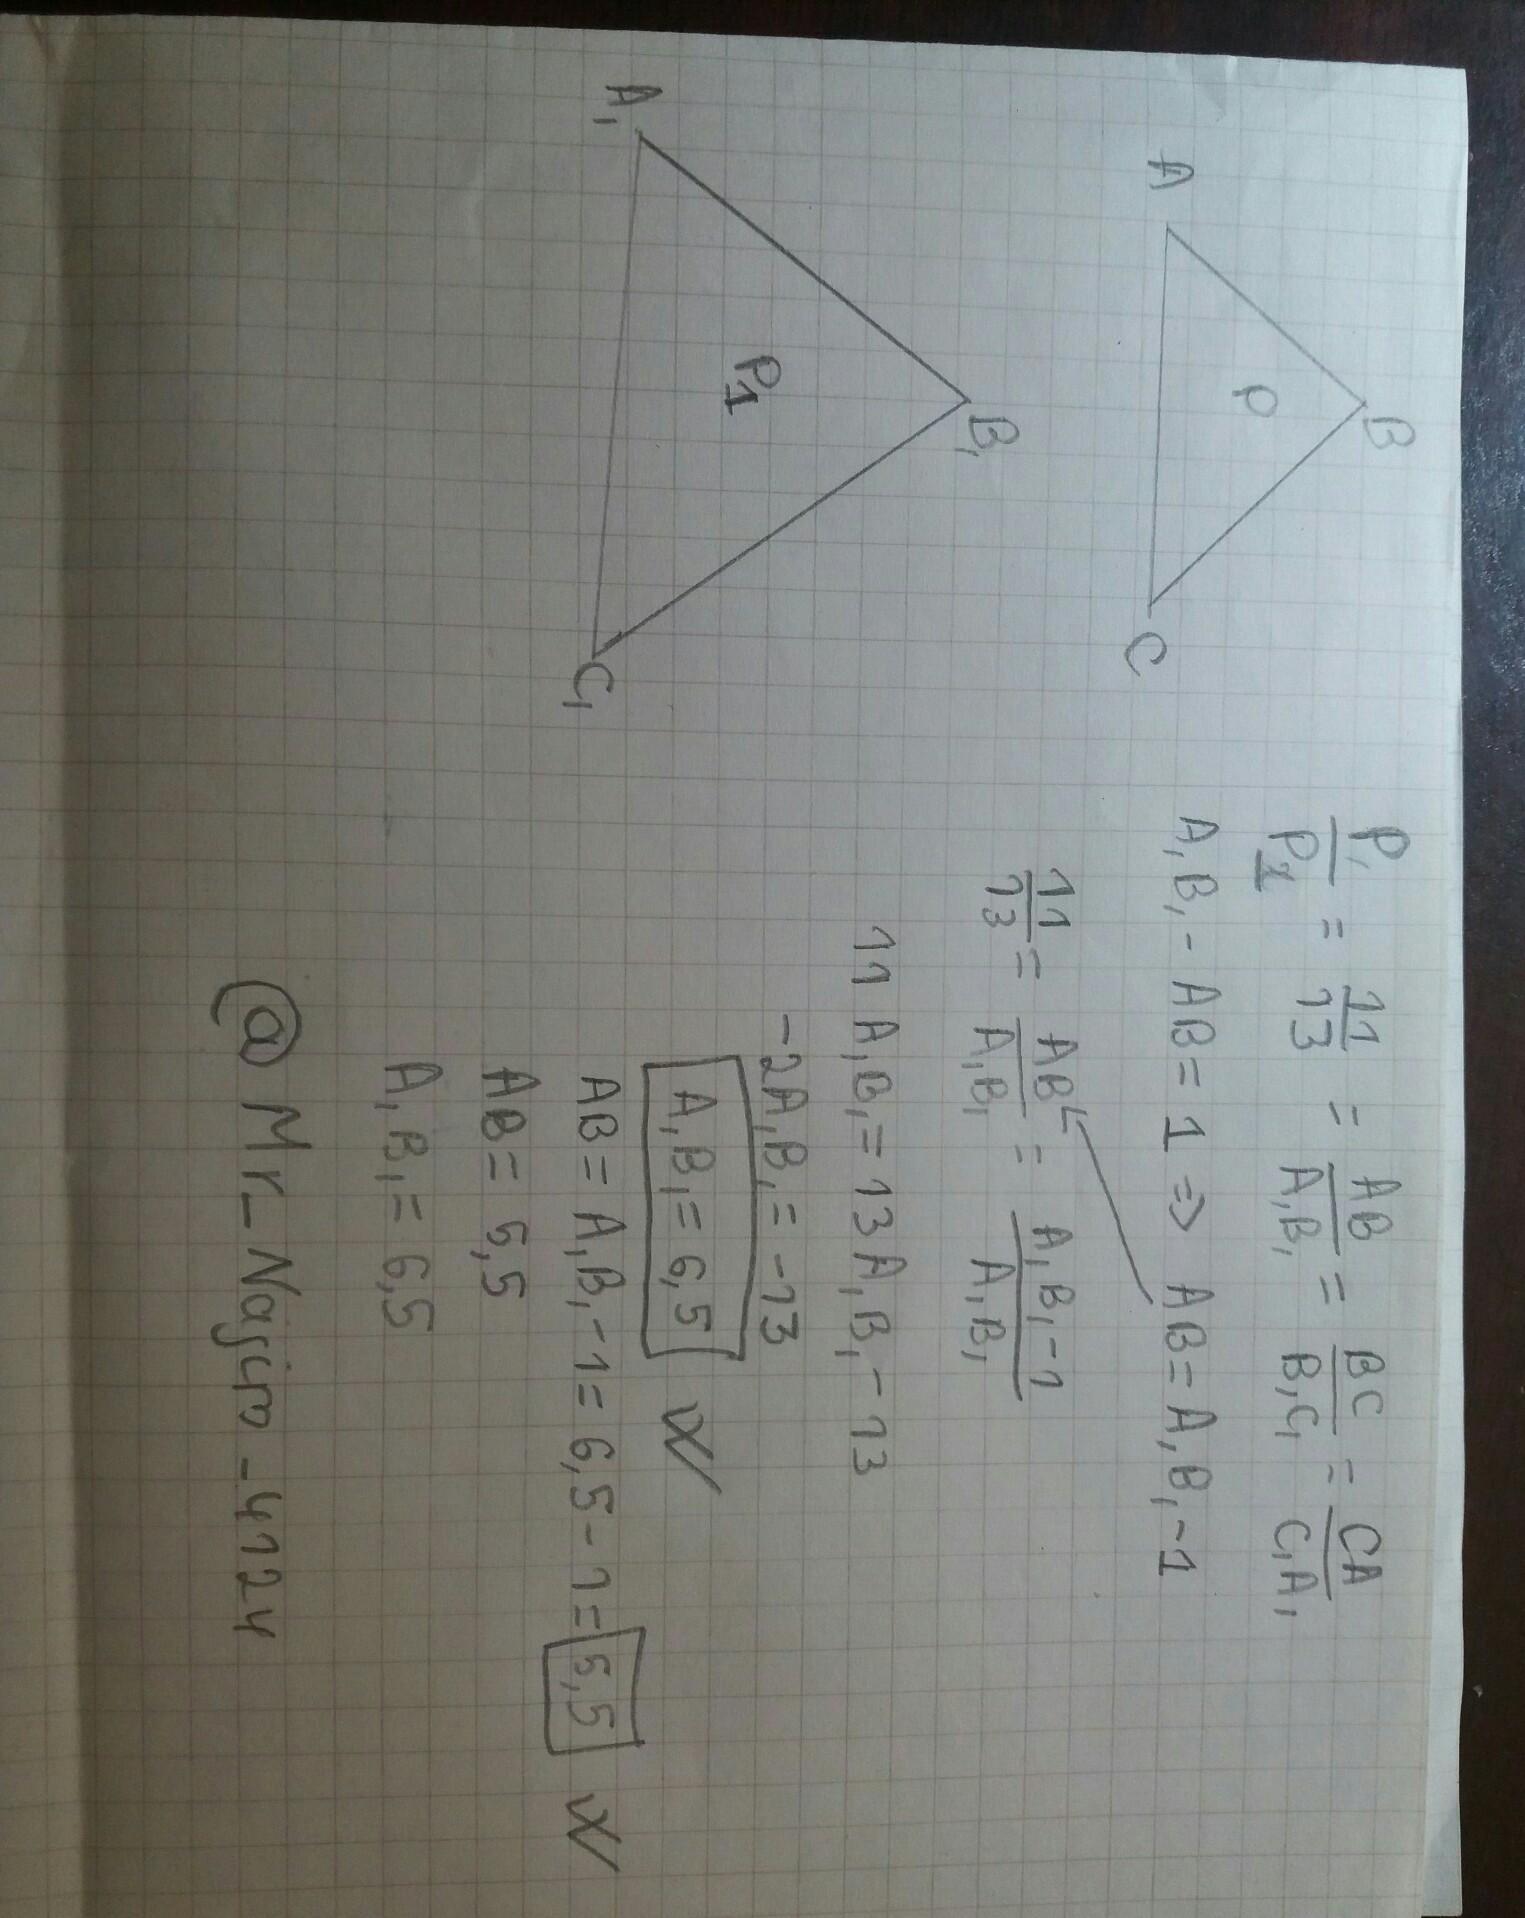 A
B
C
P
A₁
B₁
C₁
P₁
P₁/P₂ = 11/13 = AB/A₁B₁ = BC/B₁C₁ = CA/C₁A₁
A₁B₁ - AB = 1 => AB = A₁B₁ - 1
11/13 = AB/A₁B₁ = A₁B₁-1/A₁B₁
11 A₁B₁ = 13 A₁B₁ - 13
-2A₁B₁ = -13
A₁B₁ = 6,5
AB = A₁B₁ - 1 = 6,5 - 1 = 5,5
AB = 5,5
A₁B₁ = 6,5
@Mr_Nasiro-4124